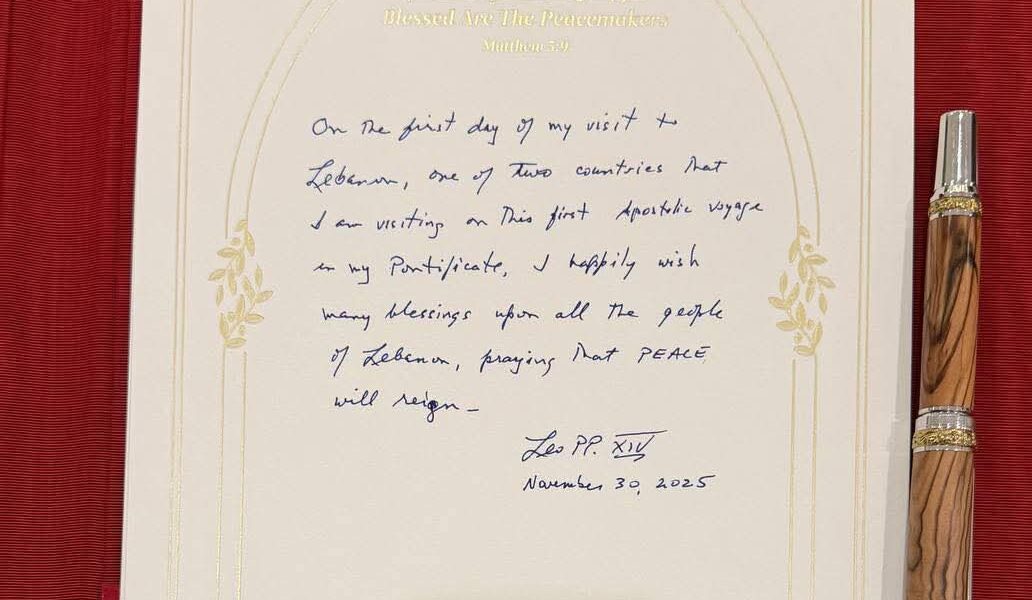 Blessed Are The Peacemakers
Matthew 5:9
On the first day of my visit to
Lebanon, one of two countries that
I am visiting on this first Apostolic voyage
in my Pontificate, I happily wish
many blessings upon all the people
of Lebanon, praying that PEACE
will reign –
Leo PP. XIV
November 30, 2025